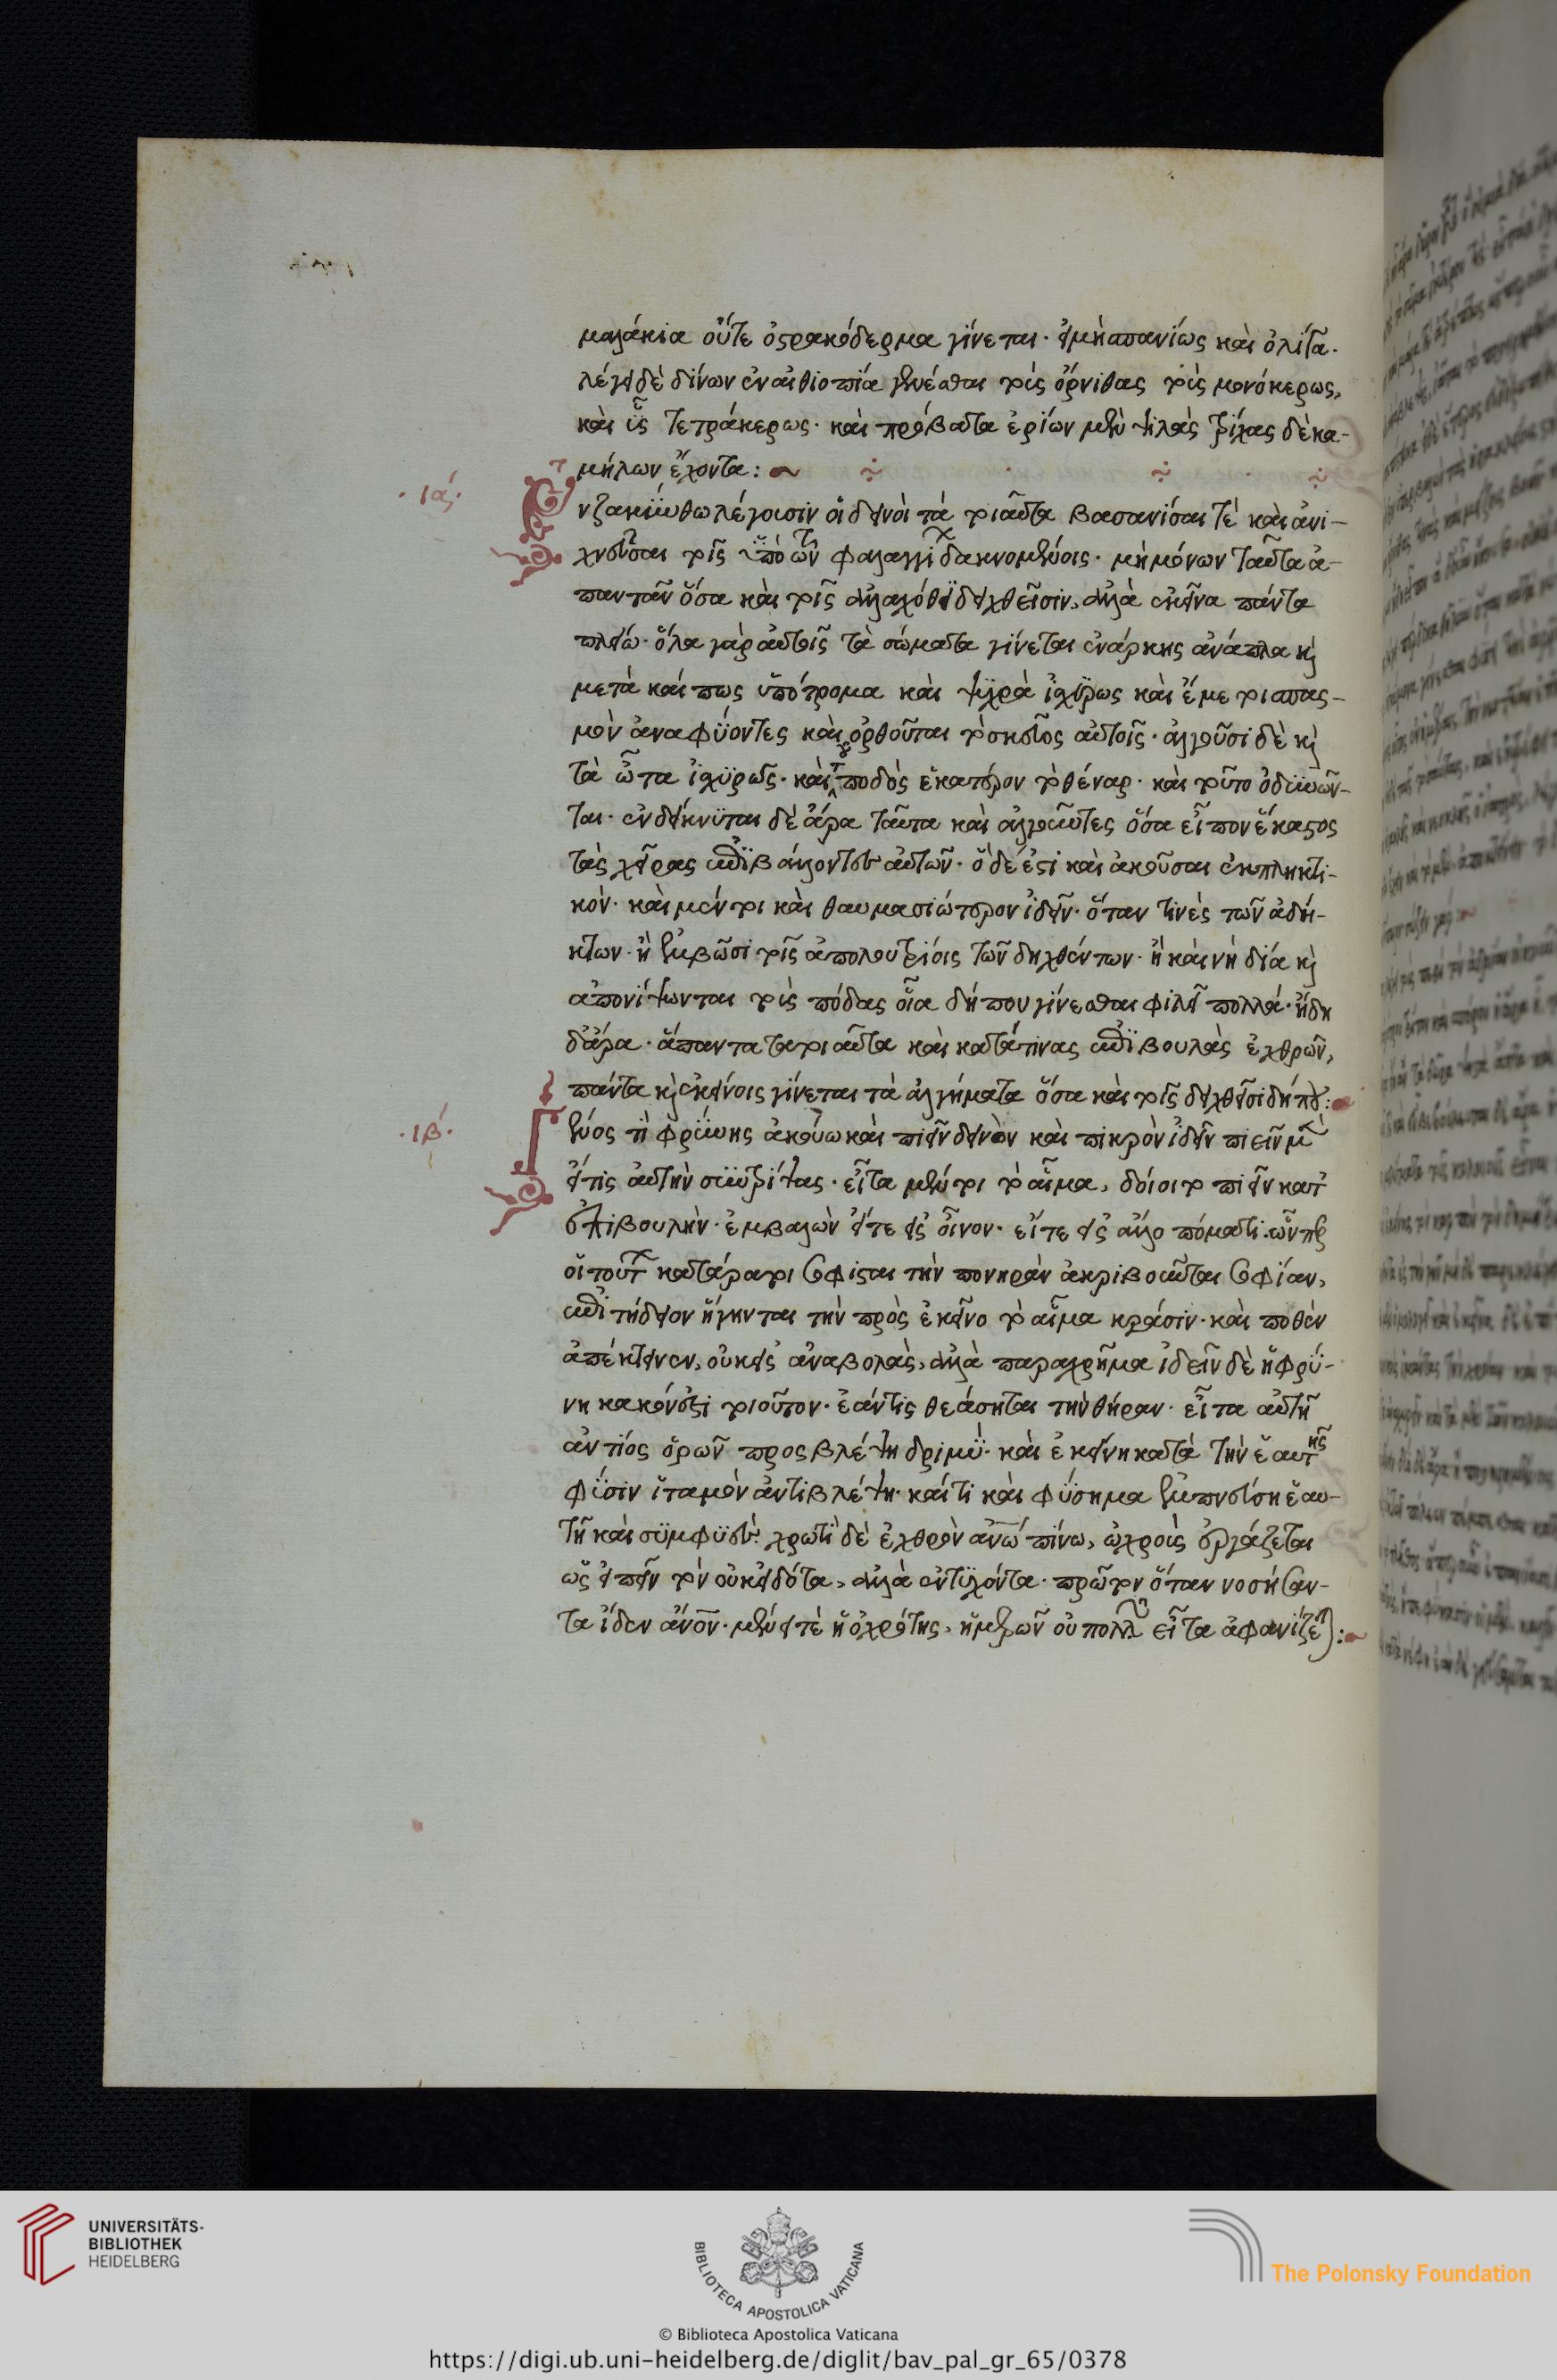 μαλάκια οὔτε ὀστρακόδερμα γίνεται· εἰ μὴ σπανίως καὶ ὀλίγα·
λέγει δὲ δίνων ἐν αἰθιοπία γινέσθαι τοὺς ὄρνιθας τοὺς μονόκερως,
καὶ ὗς τετράκερως· καὶ πρόβατα ἐρίων μὲν ψιλὰς τρίχας δὲ κα-
μήλων ἔχοντα:
·ια·
Ἐν ζακύνθω λέγουσιν οἱ δεινοὶ τὰ τοιαῦτα βασανίσαι τὲ καὶ ἀνι-
χνεῦσαι τοῖς ὑπὸ τῶν φαλαγγί δακνομένοις· μὴ μόνον ταῦτα ἀ-
παντᾶν ὅσα καὶ τοῖς ἀλλαχόθι δειχθεῖσιν, ἀλλὰ ἐκεῖνα πάντα
πλείω· ὅλα γὰρ αὐτοῖς τὰ σώματα γίνεται ἐνάρκης ἀνάπλα καὶ
μετὰ καί πως ὑπότρομα καὶ ψυχρὰ ἰσχυρῶς καὶ ἔμετοι σπας-
μὸν ἀναφύοντες καὶ ὀρθοῦται τὸ σκεῦος αὐτοῖς· ἀλγοῦσι δὲ καὶ
τὰ ὦτα ἰσχυρῶς· καὶ τοῦ ποδὸς ἑκατέρου τὸ θέναρ· καὶ τοῦτο ὀδυνῶν-
ται· ἐνδείκνυται δὲ ἄρα ταῦτα καὶ ἀλγοῦντες ὅσα εἶπον ἕκαστος
τὰς χεῖρας ἐπιβάλλοντες αὐτῶν· ὃ δέ ἐστι καὶ ἀκοῦσαι ἐκπληκτι-
κόν· καὶ μέντοι καὶ θαυμασιώτερον ἰδεῖν· ὅταν τινὲς τῶν ἀδή-
κτων· ἢ ἐμβῶσι τοῖς ἀπολουτρίοις τῶν δηχθέντων· ἢ καὶ νὴ δία καὶ
ἀπονίψωνται τοὺς πόδας οἷα δήπου γίνεσθαι φιλεῖ πολλά· ἤδη
δ' ἄρα· ἅπαντα τὰ τοιαῦτα καὶ κατά τινας ἐπιβουλὰς ἐχθρῶν,
πάντα καὶ ἐκείνοις γίνεται τὰ ἀλγήματα ὅσα καὶ τοῖς δειχθεῖσι δήπου:
·ιβ·
Γένος τι φρύνης ἀκούω καὶ πιεῖν δεινὸν καὶ πικρὸν ἰδεῖν πιεῖν μὲν
εἴ τις αὐτὴν συντρίψας· εἶτα μέντοι τὸ αἷμα, δοίοι τω πιεῖν κατ'
ἐπιβουλήν· ἐμβαλὼν εἴτε εἰς οἶνον· εἴτε εἰς ἄλλο πόματι· ὧνπερ
οἱ τούτ κατάρατοι σοφισταὶ τὴν πονηρὰν ἀκριβοῦνται σοφίαν,
ἐπιτήδειον ἥγηνται τὴν πρὸς ἐκεῖνο τὸ αἷμα κράσιν· καὶ ποθὲν
ἀπέκτεινεν, οὐκ εἰς ἀναβολὰς, ἀλλὰ παραχρῆμα ἰδεῖν δὲ ἡ φρύ-
νη κακόν ἐστι τοιοῦτον· ἐάν τις θεάσηται τὴν θήραν· εἶτα αὐτῆ
ἀντίος ὁρῶν προσβλέψη δριμύ· καὶ ἐκείνη κατὰ τὴν ἑαυτῆς
φύσιν ἰταμὸν ἀντιβλέψη· καί τι καὶ φύσημα ἐμπνεύση ἑαυ-
τῆ καὶ συμφυὲς· χρωτὶ δὲ ἐχθρὸν ἀνω πίνω, ὠχροὺς ἐργάζεται
ὡς εἰπεῖν τὸν οὐκ εἰδότα, ἀλλὰ ἐντυχόντα· πρῶτον ὅταν νοσήσαν-
τα ἴδεν ἄνον· μένει τὲ ἡ ὀχρότης, ἡμερῶν οὐ πολλῶν εἶτα ἀφανίζεται:
UNIVERSITÄTS-
BIBLIOTHEK
HEIDELBERG
BIBLIOTECA APOSTOLICA VATICANA
The Polonsky Foundation
© Biblioteca Apostolica Vaticana
https://digi.ub.uni-heidelberg.de/diglit/bav_pal_gr_65/0378